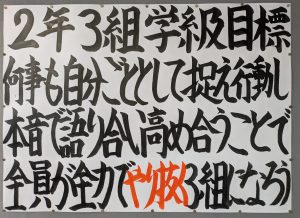 2年3組学級目標
何事も自分ごととして捉え行動し
本音で語り合い高め合うことで
全員が全力でやり抜く3組になろう